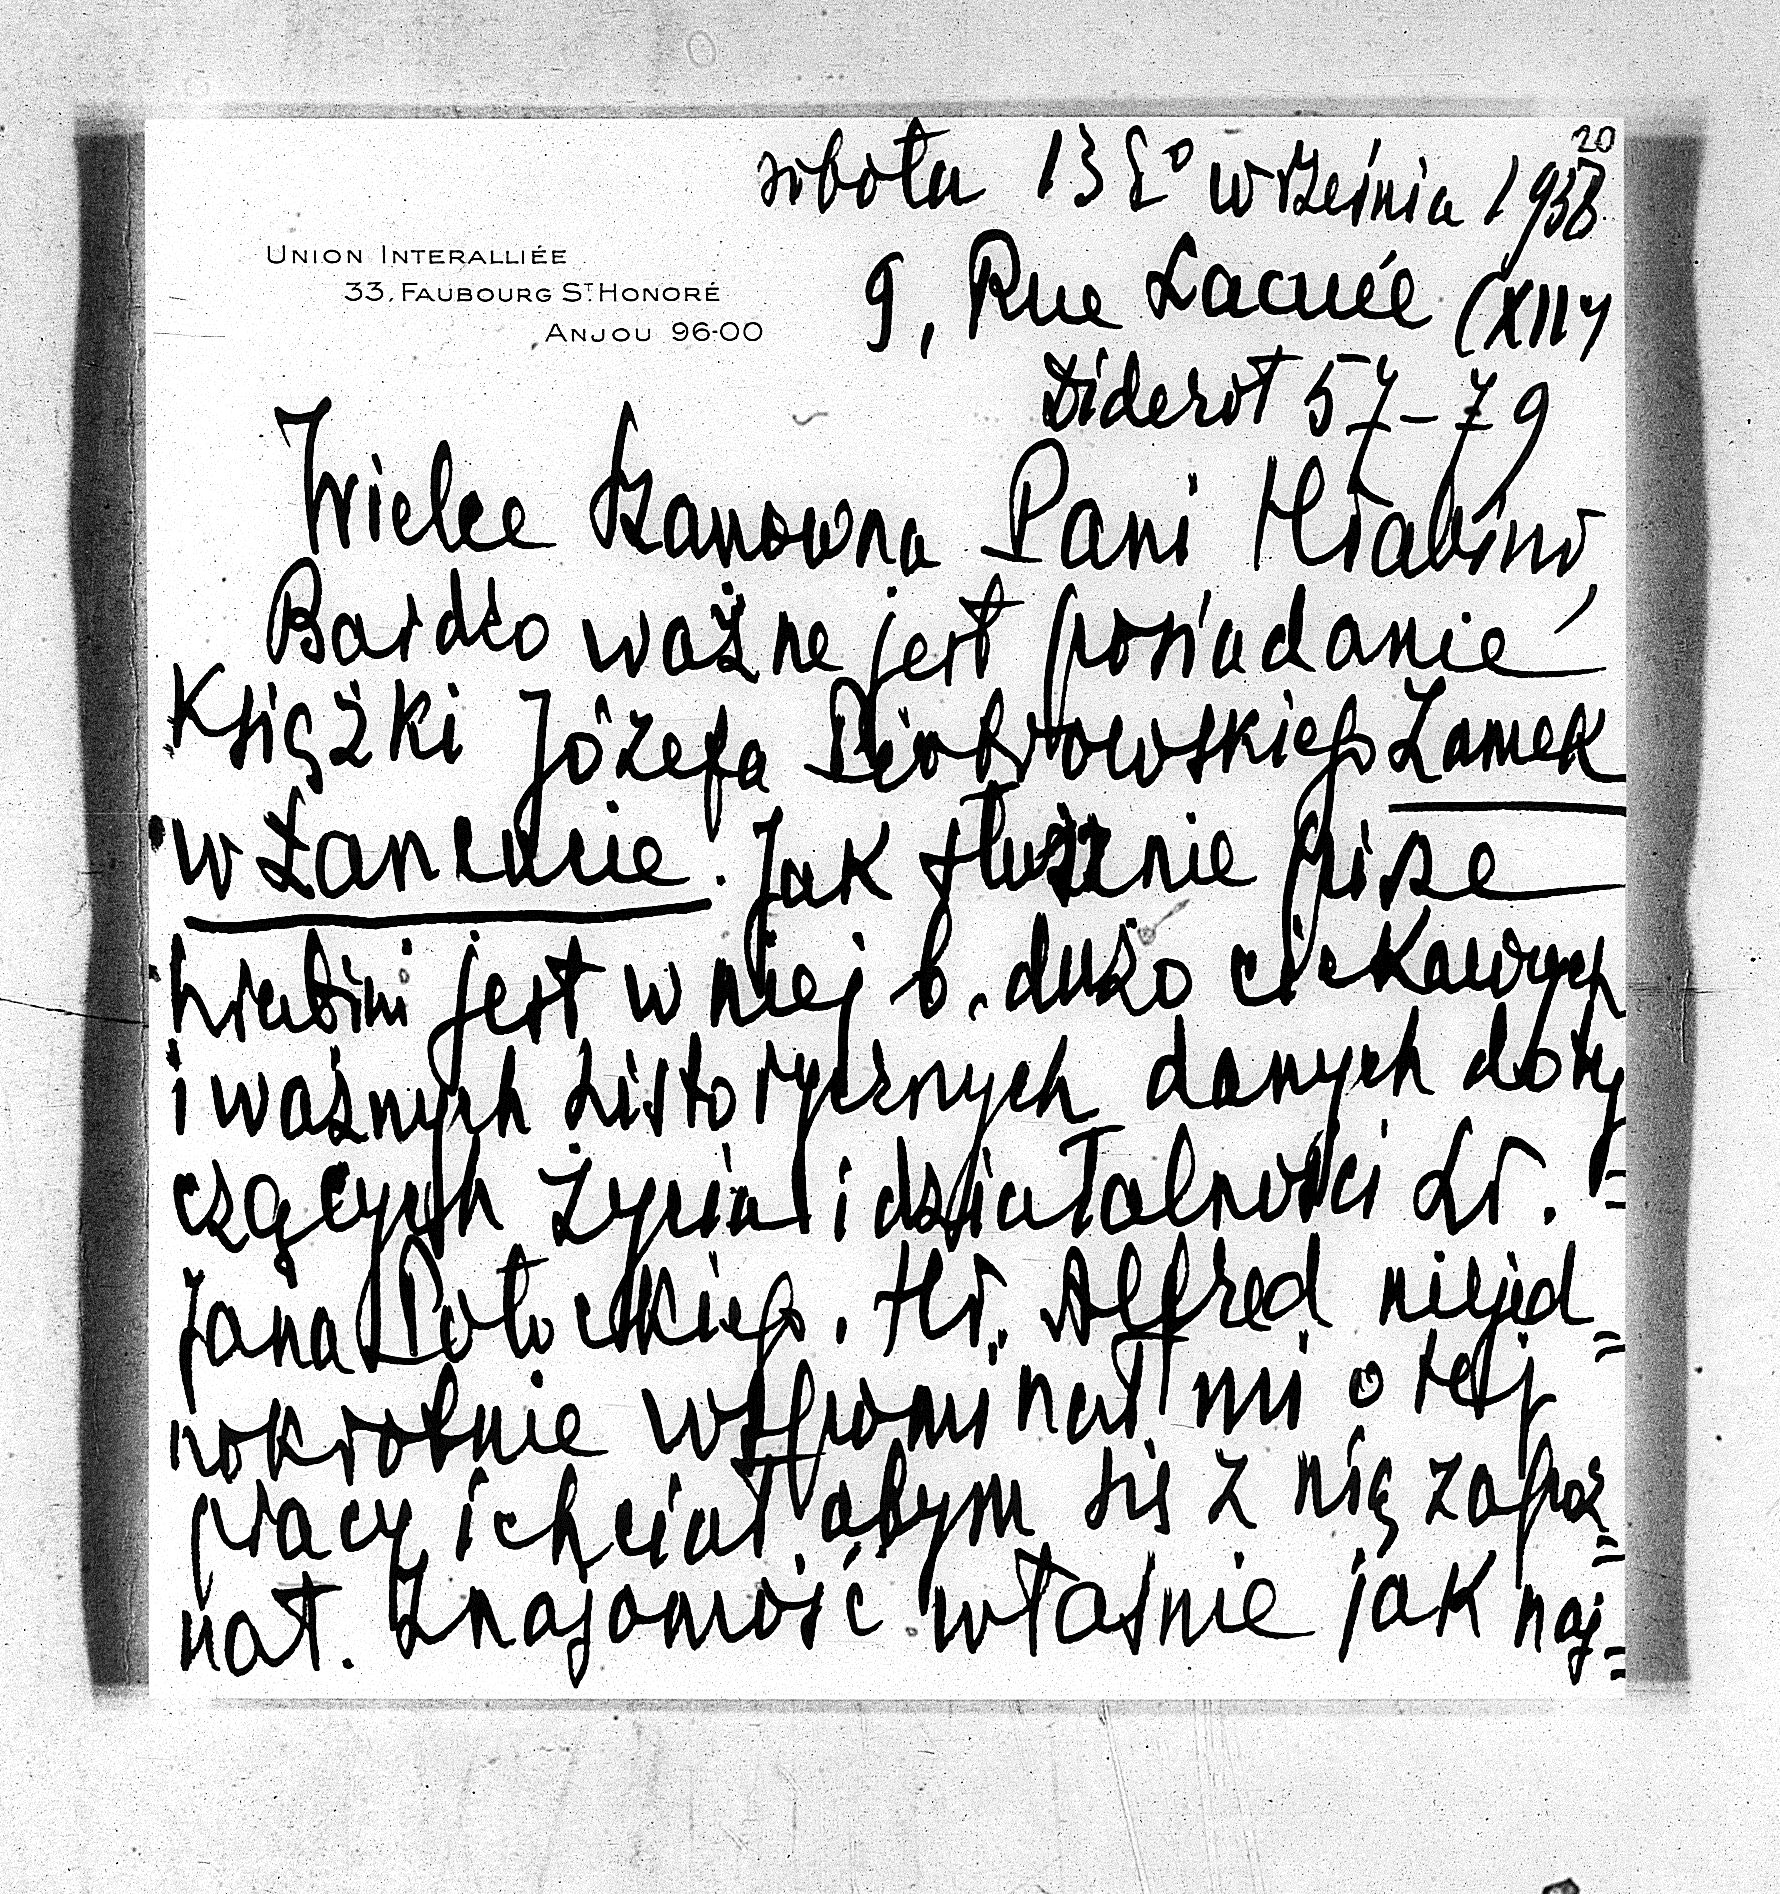 20
sobota 13go września 1958
UNION INTERALLIÉE
33, FAUBOURG ST HONORÉ
ANJOU 96-00
9, Rue Lacuée (XII)
Diderot 57-79
Wielce Szanowna Pani Hrabino,
Bardzo ważne jest posiadanie
Książki Józefa Piotrowskiego Zamek
w Łańcucie. Jak słusznie pisze
hrabini jest w niej b. dużo ciekawych
i ważnych historycznych danych doty=
czących życia i działalności hr.
Jana Potockiego. Hr. Alfred niejed=
nokrotnie wspominał mi o tej
pracy i chciał abym się z nią zapoz=
nał. Znajomość właśnie jak naj=